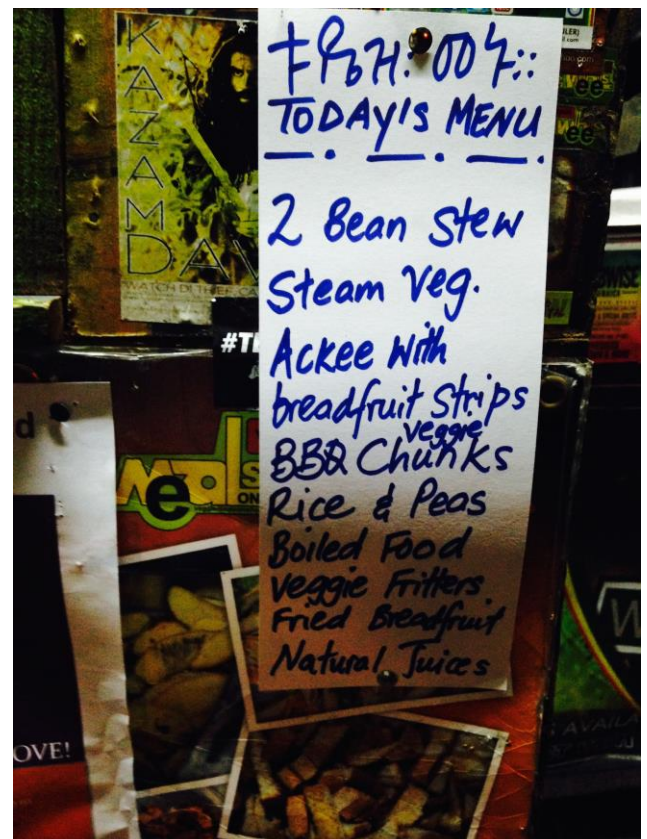 TODAY'S MENU
2 Bean Stew
Steam Veg.
Ackee With
breadfruit Strips
BBQ veggie Chunks
Rice & Peas
Boiled Food
Veggie Fritters
Fried Breadfruit
Natural Juices
KAZAM
WATCH DI THIEF
ee
ee
Meals
ON
OVE!